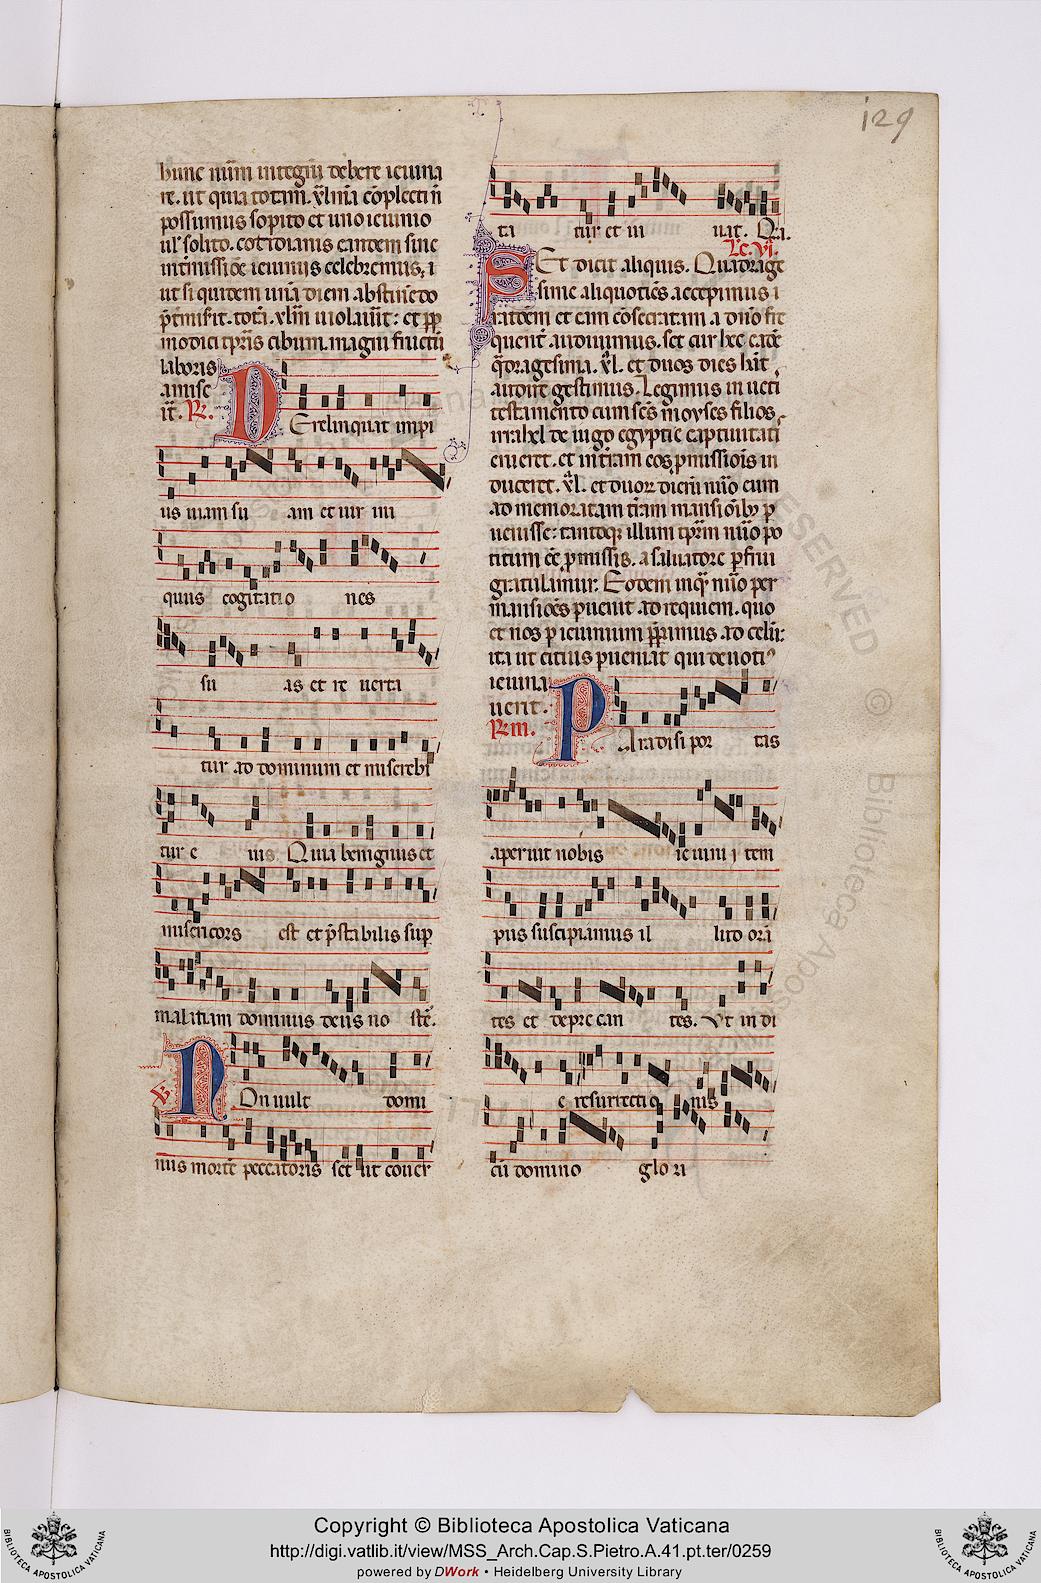 129
hunc nūm integrū debere ieiuna
re. ut quia totam. xlma cōplecti n̄
possumus sopito et uno ieiunio
ul' solito. cottidianis eandem sine
int'missiōe ieiuniis celebremus; i
ut si quidem unā diem abstinēdo
p̄t'misit. totā. xlm̄ uiolauit: et p̄p̄
modici tp̄ris cibum. magni fructū
laboris
amise
it. R̄.
DErelinquat impi
us uiam su am et uir ini
quus cogitatio nes
su as et re uerta
tur ad dominum et misereb'
tur e ius. Quia benignus et
misericors est et p̄stabilis sup̄
malitiam dominus deus no ste.
V̄. NOn uult domi
nus morte peccatoris set ut couer
ta tur et ui uat. Qi.
Le. vi.
SEt dicit aliquis. Quadrage
sime aliquotiēs accepimus i
ratōem et eam cōsecratam a dn̄o fre
quent' audiuimus. set cur hec eadē
q̄dragesima. xl. et duos dies hāt
audire gestimus. Legimus in ueti
testamento cum scs moyses filios
israhel de iugo egyptie captiuitati
erueret. et in t'ram eos p̄missiōis in
duceret. xl. et duor dierū nūo eum
ad memoratam t'ram mansiōib' p
uenisse: tantoq; illum tp̄m nūo po
titum ēē p̄missis. a saluatore p̄ frui
gratulamur: Eodem inq' nūo per
mansiōēs p̄uenit ad requiem. quo
et nos p ieiunium p̄p̄amus ad celū:
ita ut citius p̄ueniāt qui deuoti'
ieiuna
uerit.
R̄m.
PAradisi por tas
aperuit nobis ieiuni j tem
pus suscipiamus il lud orā
tes et deprecan tes. Vt in di
e resurrectio nis
cū domino glo ri
Copyright © Biblioteca Apostolica Vaticana
http://digi.vatlib.it/view/MSS_Arch.Cap.S.Pietro.A.41.pt.ter/0259
powered by DWork • Heidelberg University Library
BIBLIOTECA APOSTOLICA VATICANA
BIBLIOTECA APOSTOLICA VATICANA